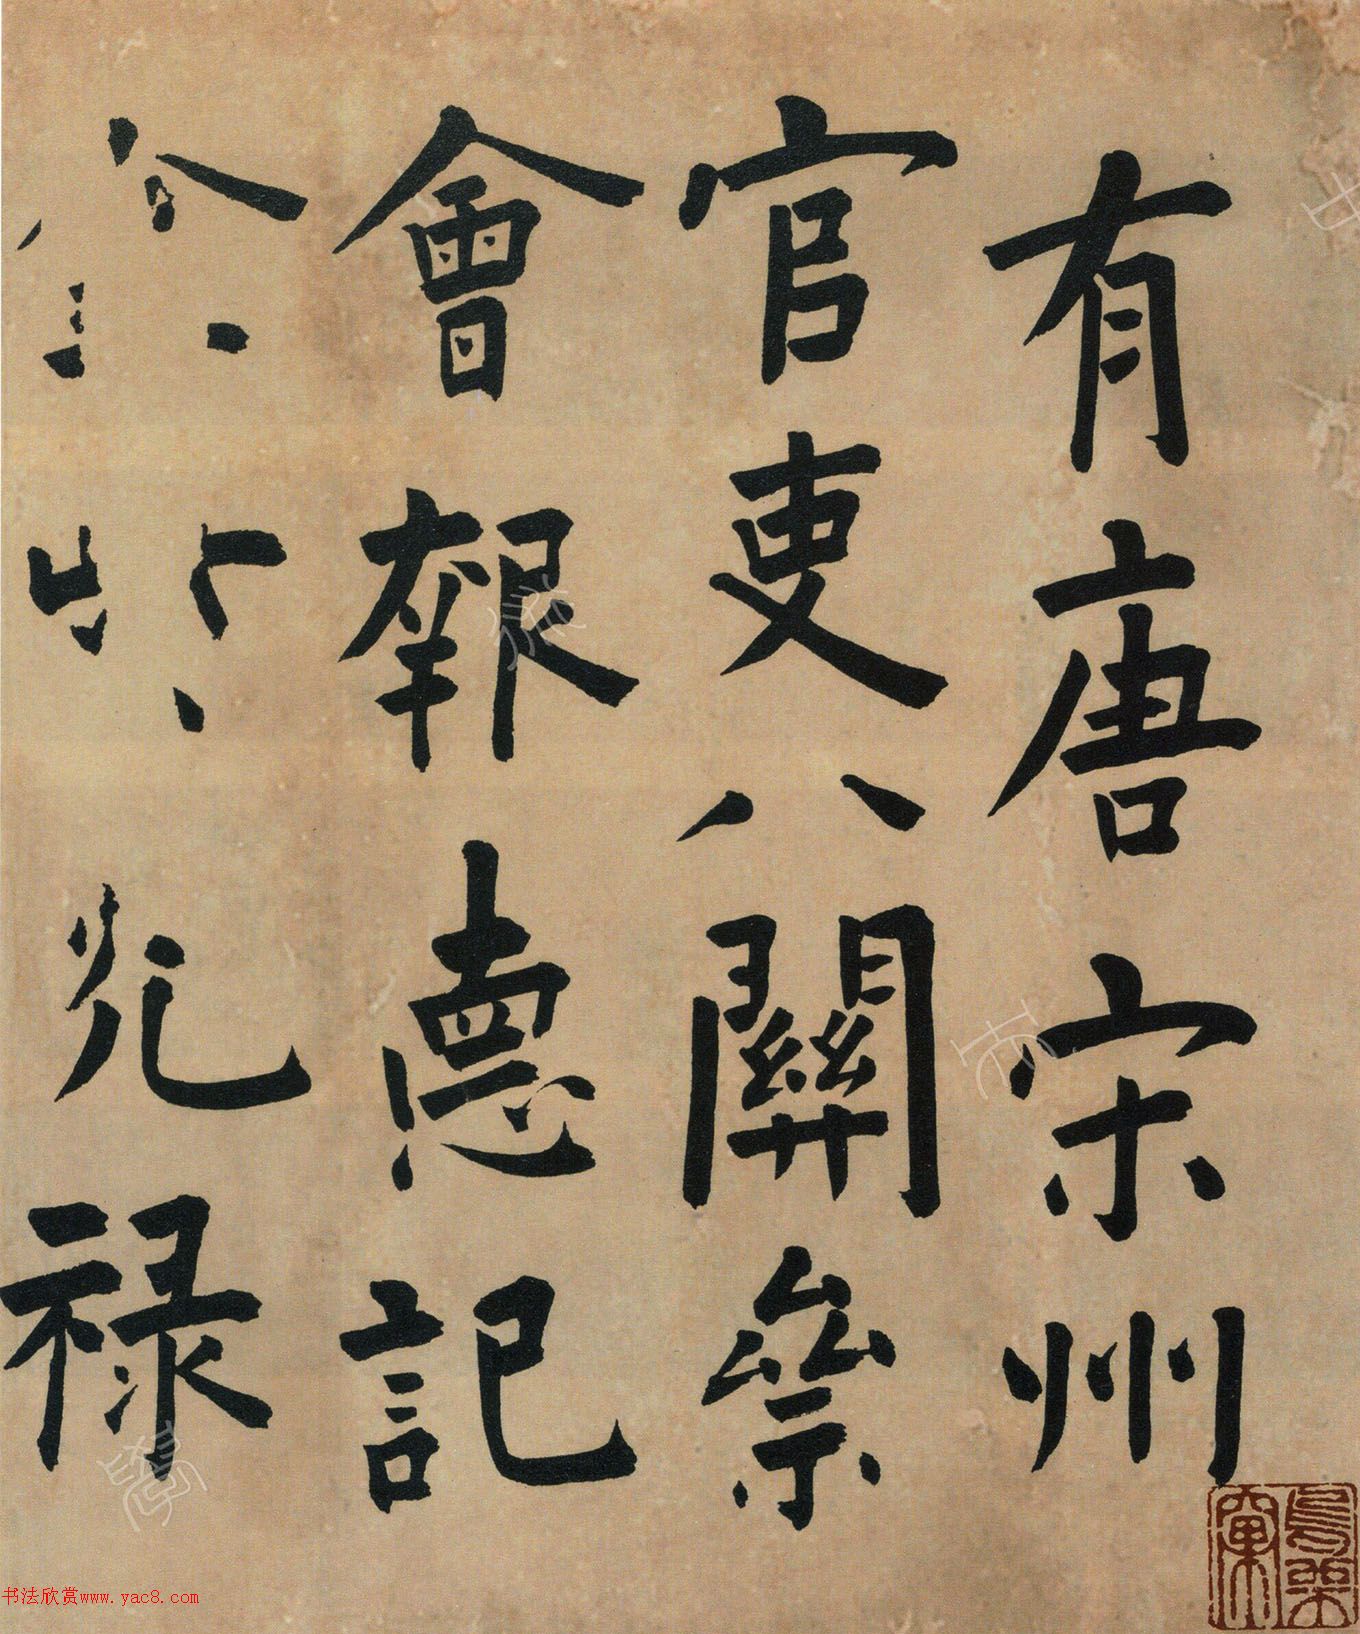 有唐宋州
官吏八關齋
會報悳記
光禄
书法欣赏www.yac8.com